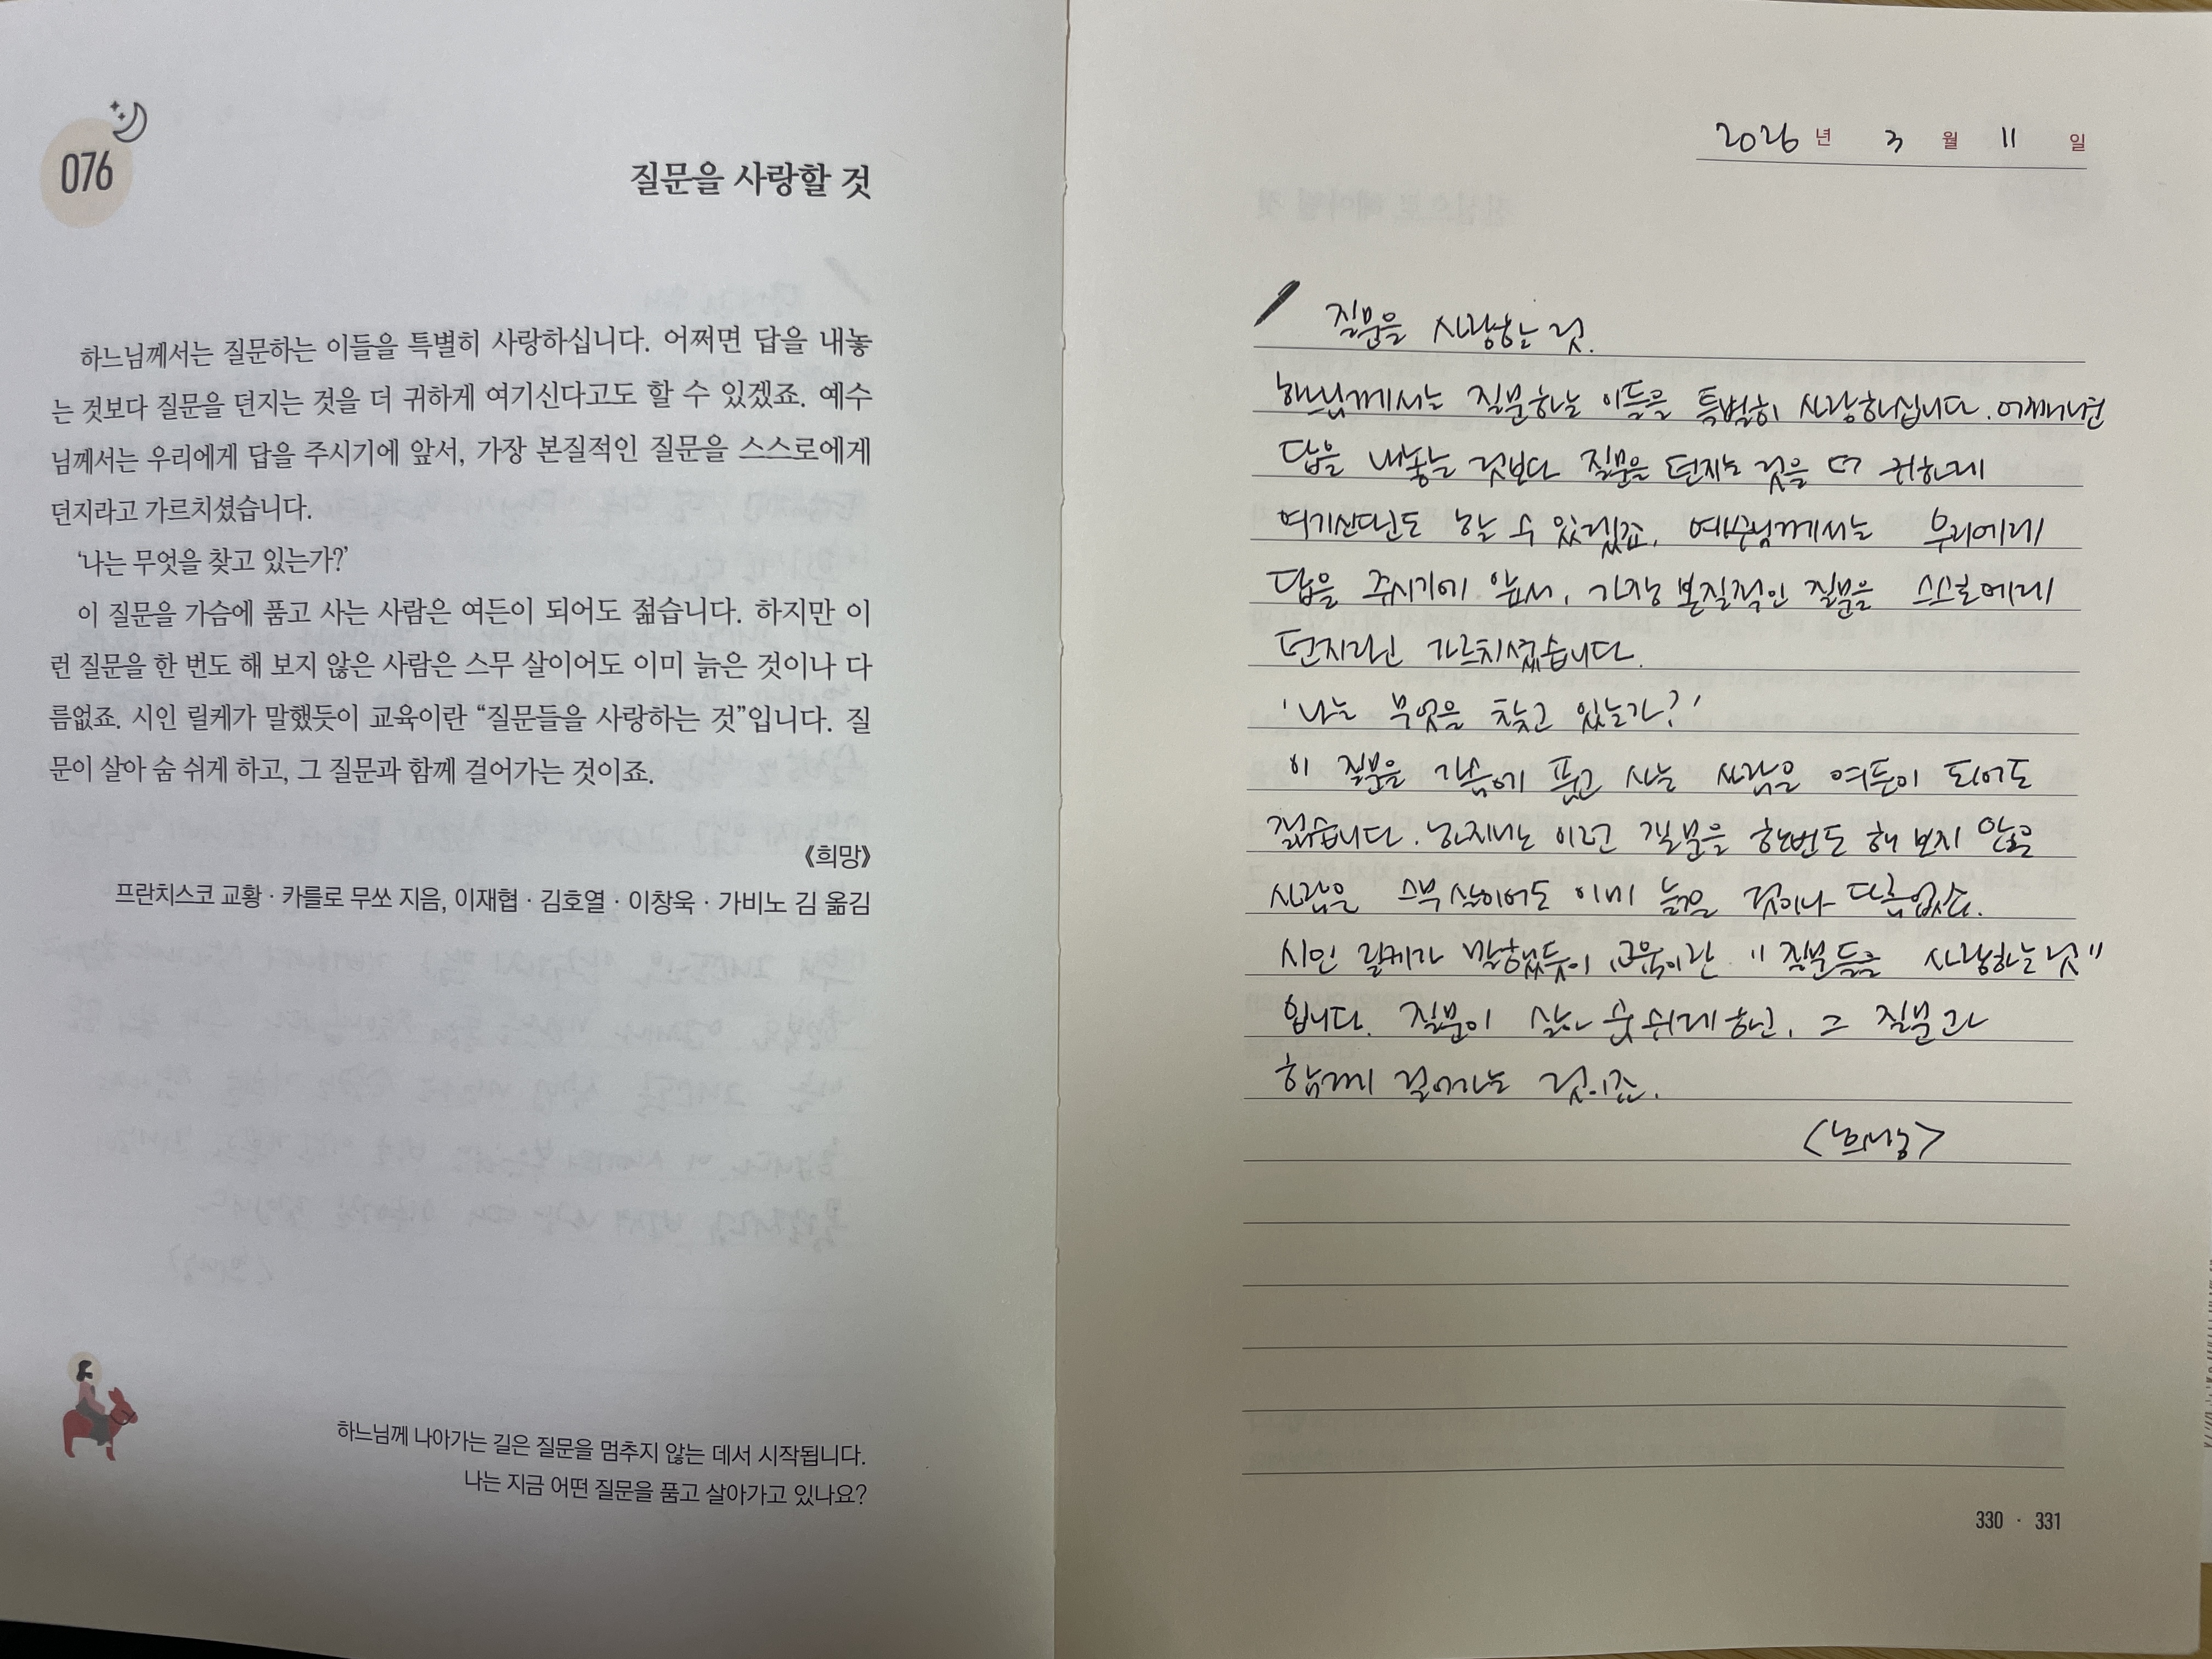 076
질문을 사랑할 것
하느님께서는 질문하는 이들을 특별히 사랑하십니다. 어쩌면 답을 내놓
는 것보다 질문을 던지는 것을 더 귀하게 여기신다고도 할 수 있겠죠. 예수
님께서는 우리에게 답을 주시기에 앞서, 가장 본질적인 질문을 스스로에게
던지라고 가르치셨습니다.
‘나는 무엇을 찾고 있는가?’
이 질문을 가슴에 품고 사는 사람은 여든이 되어도 젊습니다. 하지만 이
런 질문을 한 번도 해 보지 않은 사람은 스무 살이어도 이미 늙은 것이나 다
름없죠. 시인 릴케가 말했듯이 교육이란 “질문들을 사랑하는 것”입니다. 질
문이 살아 숨 쉬게 하고, 그 질문과 함께 걸어가는 것이죠.
《희망》
프란치스코 교황 · 카를로 무쏘 지음, 이재협 · 김호열 · 이창욱 · 가비노 김 옮김
하느님께 나아가는 길은 질문을 멈추지 않는 데서 시작됩니다.
나는 지금 어떤 질문을 품고 살아가고 있나요?
2026 년 3 월 11 일
질문을 사랑하는 것.
하느님께서는 질문하는 이들을 특별히 사랑하십니다. 어쩌면
답을 내놓는 것보다 질문을 던지는 것을 더 귀하게
여기신다고도 할 수 있겠죠. 예수님께서는 우리에게
답을 주시기에 앞서, 가장 본질적인 질문을 스스로에게
던지라고 가르치셨습니다.
'나는 무엇을 찾고 있는가?'
이 질문을 가슴에 품고 사는 사람은 여든이 되어도
젊습니다. 하지만 이런 질문을 한번도 해 보지 않은
사람은 스무 살이어도 이미 늙은 것이나 다름없죠.
시인 릴케가 말했듯이 교육이란 "질문들을 사랑하는 것"
입니다. 질문이 살아 숨 쉬게 하고, 그 질문과
함께 걸어가는 것이죠.
<희망>
330 · 331